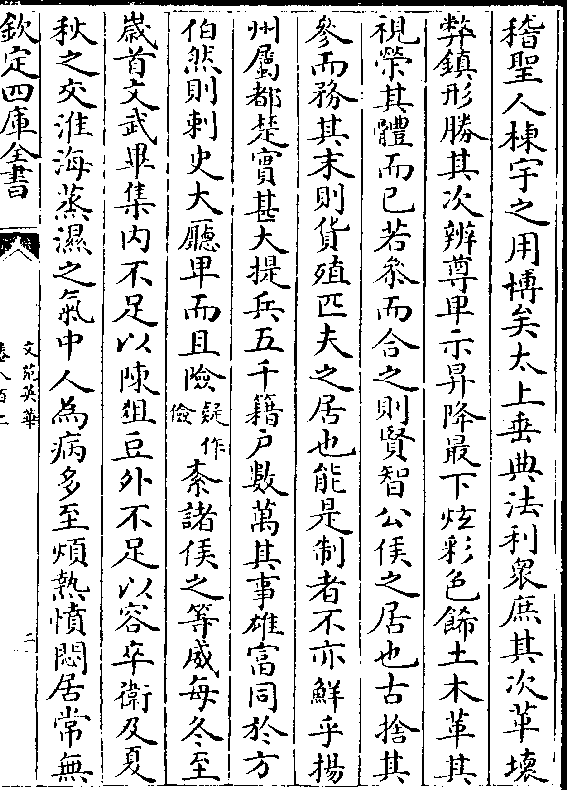 稽聖人棟宇之用博矣太上垂典法利衆庶其次革壞
弊鎮形勝其次辨尊卑示昇降最下炫彩色餙土木革其
視榮其體而已若叅而合之則賢智公侯之居也古捨其
參而務其末則貨殖匹夫之居也能是制者不亦鮮乎揚
州屬都楚實甚大提兵五千籍户數萬其事雄富同於方
伯然則刺史大廳卑而且險疑作儉紊諸侯之等威每冬至
嵗首文武畢集内不足以陳俎豆外不足以容卒衛及夏
秋之交淮海蒸濕之氣中人為病多至煩熱憤悶居常無
欽定四庫全書
文苑英華
卷八百二
二